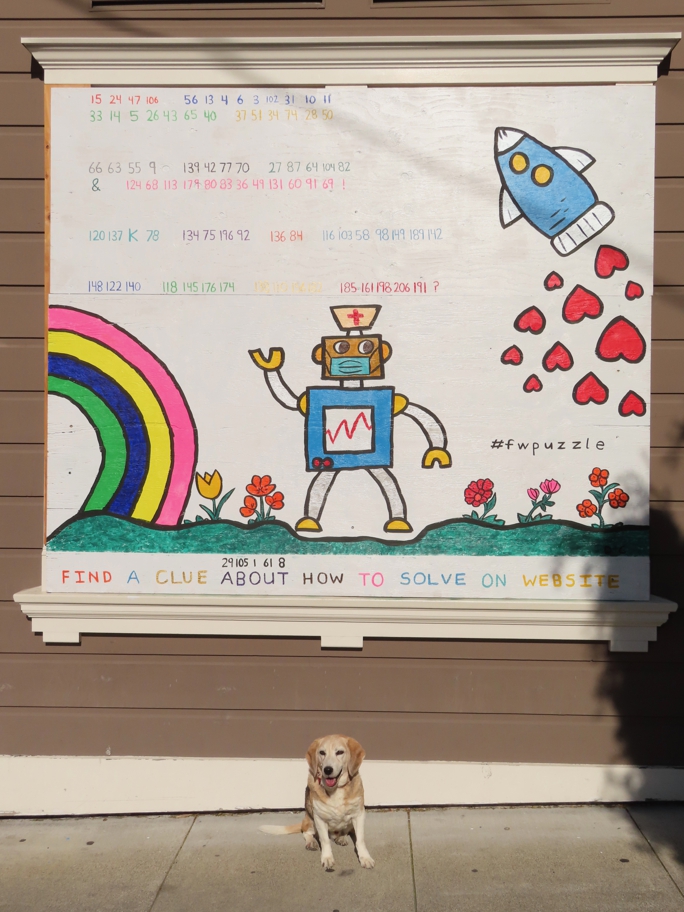 15 24 47 106 56 13 4 6 3 102 31 10 11
33 14 5 26 43 65 40 37 51 34 74 28 50
66 63 55 9 139 42 77 70 27 87 64 104 82
& 124 68 113 179 80 83 36 49 131 60 91 69 !
120 137 K 78 134 75 196 92 136 84 116 103 58 98 149 189 142
148 122 140 118 145 176 174 185 161 198 206 191 ?
#fwpuzzle
29 105 1 61 8
FIND A CLUE ABOUT HOW TO SOLVE ON WEBSITE